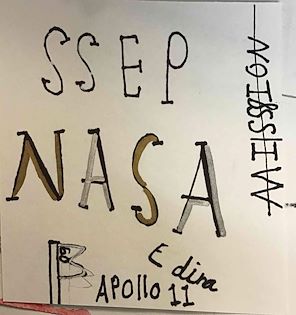 SSEP
NASA
MISSION
Edina
APOllO 11